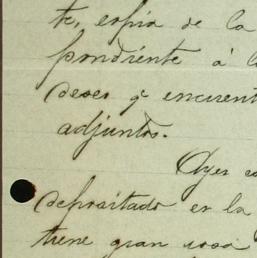 te, copia de la
pondiente á l
deseo qe encuent
adjuntos.
Ayer
depositado en la
tiene gran cosa